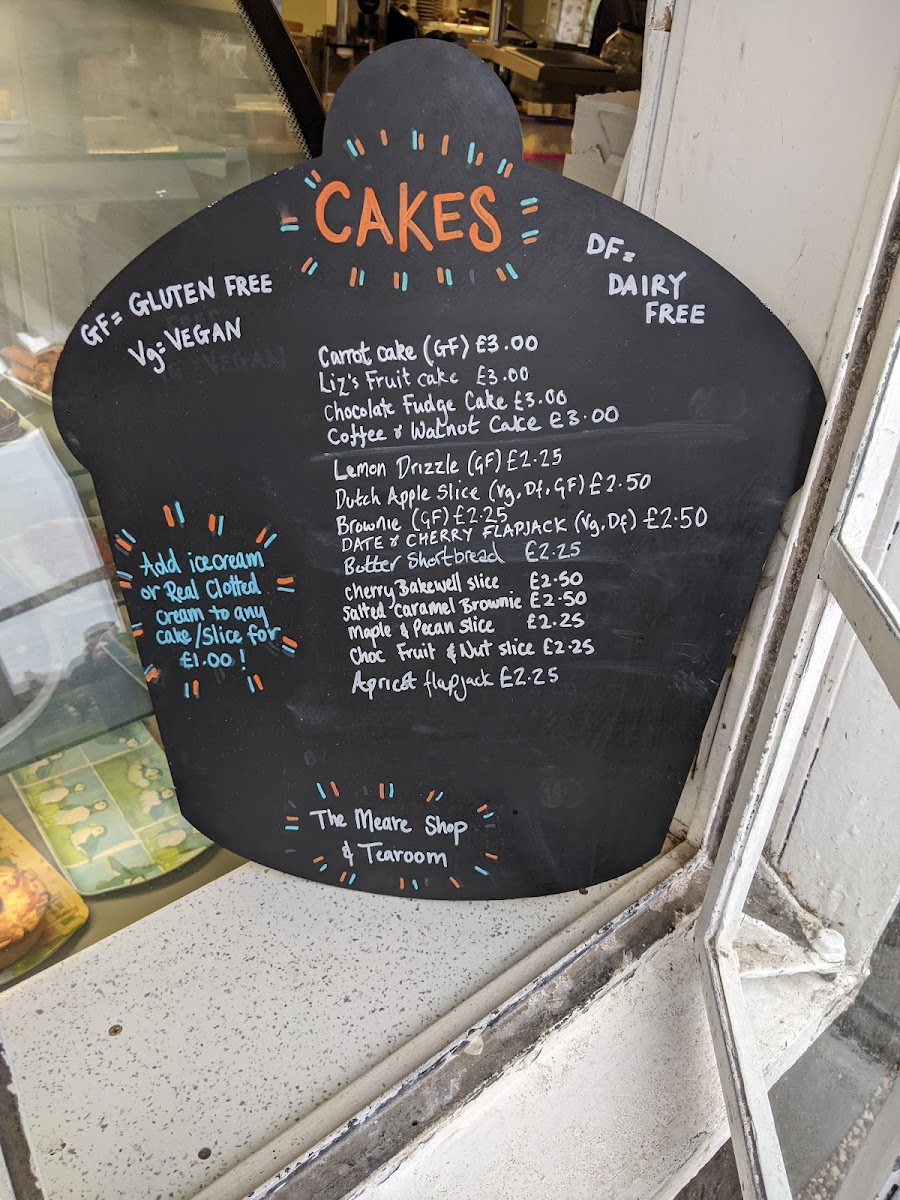 CAKES
GF= GLUTEN FREE
Vg=VEGAN
DF=
DAIRY
FREE
Carrot cake (GF) £3.00
Liz's Fruit cake £3.00
Chocolate Fudge Cake £3.00
Coffee & Walnut Cake £3.00
Lemon Drizzle (GF) £2.25
Dutch Apple Slice (Vg, Df, GF) £2.50
Brownie (GF) £2.25
DATE & CHERRY FLAPJACK (Vg, Df) £2.50
Butter Shortbread £2.25
cherry Bakewell slice £2.50
Salted Caramel Brownie £2.50
Maple & Pecan slice £2.25
Choc Fruit & Nut slice £2.25
Apricot flapjack £2.25
Add icecream
or Real Clotted
cream to any
cake/slice for
£1.00!
The Meare Shop
& Tearoom